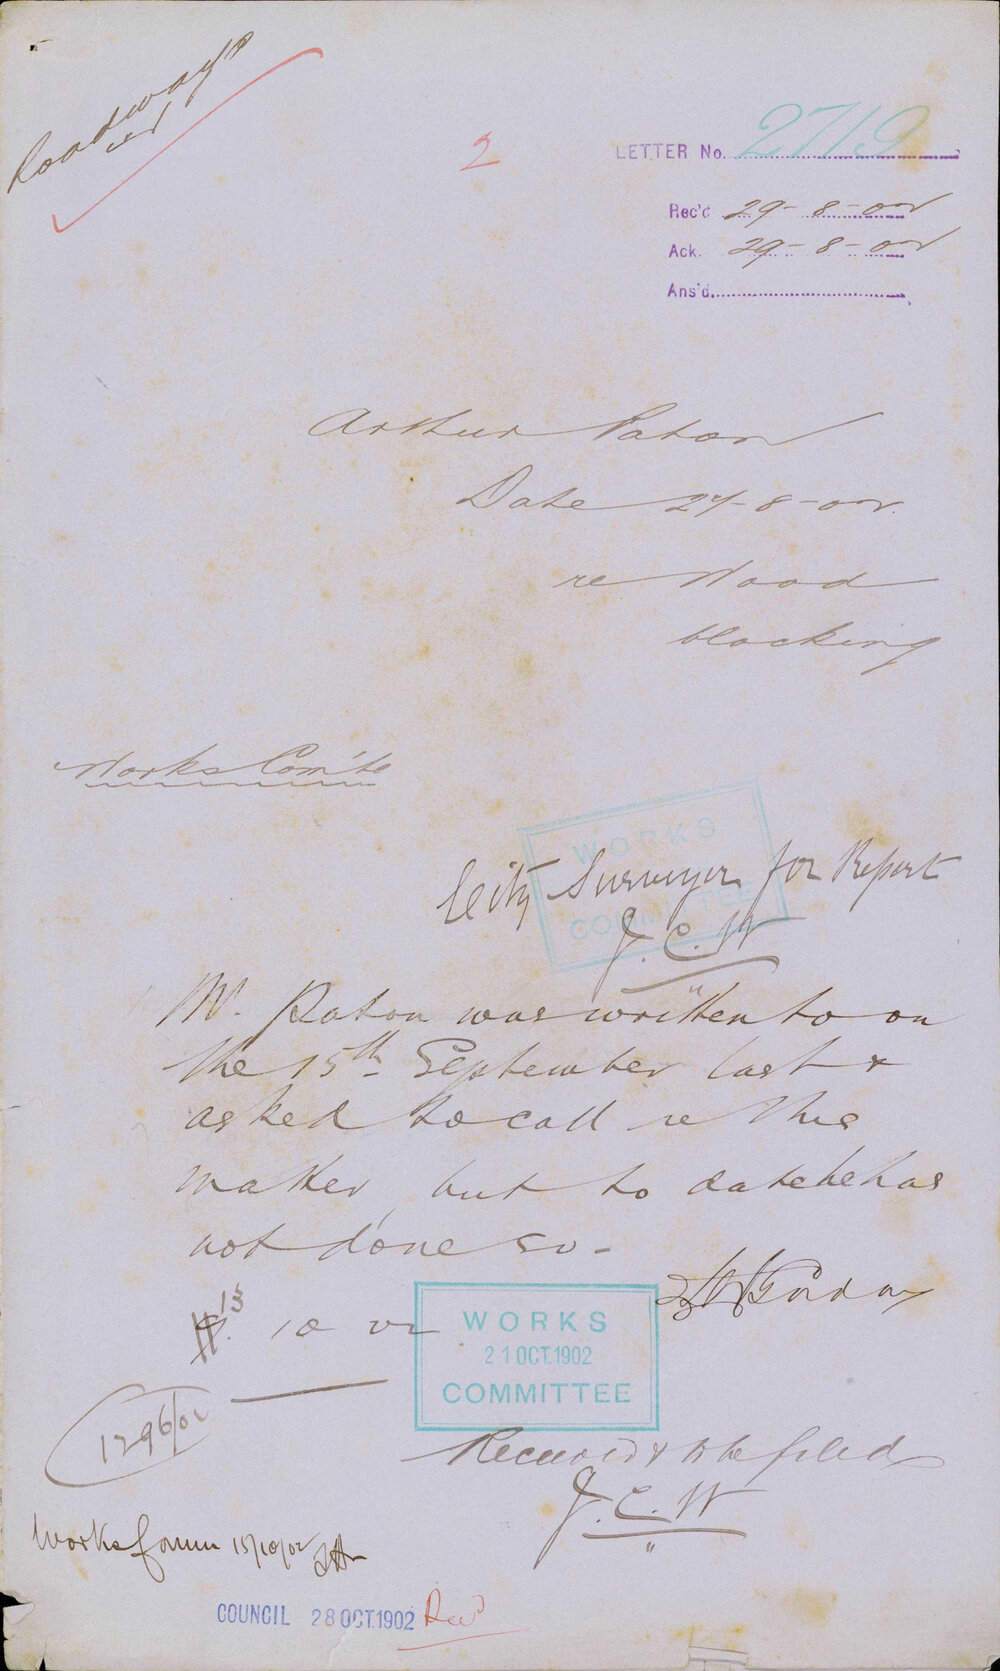 Roadways
2
LETTER No. 2719
Rec'd 29-8-02
Ack. 29-8-02
Ans'd.
Arthur Paton
Date 27-8-02.
re Wood
blocking
Works Com'te
WORKS
COMMITTEE
City Surveyor for Report
J. C. W
Mr. Paton was written to on
the 15th September last &
asked to call re this
matter, but to date he has
not done so -
13. 10 02
WORKS
21 OCT. 1902
COMMITTEE
1296/02
Received & to be filed
J. C. W
Works Comm 15/10/02
COUNCIL 28 OCT. 1902 Rec'd